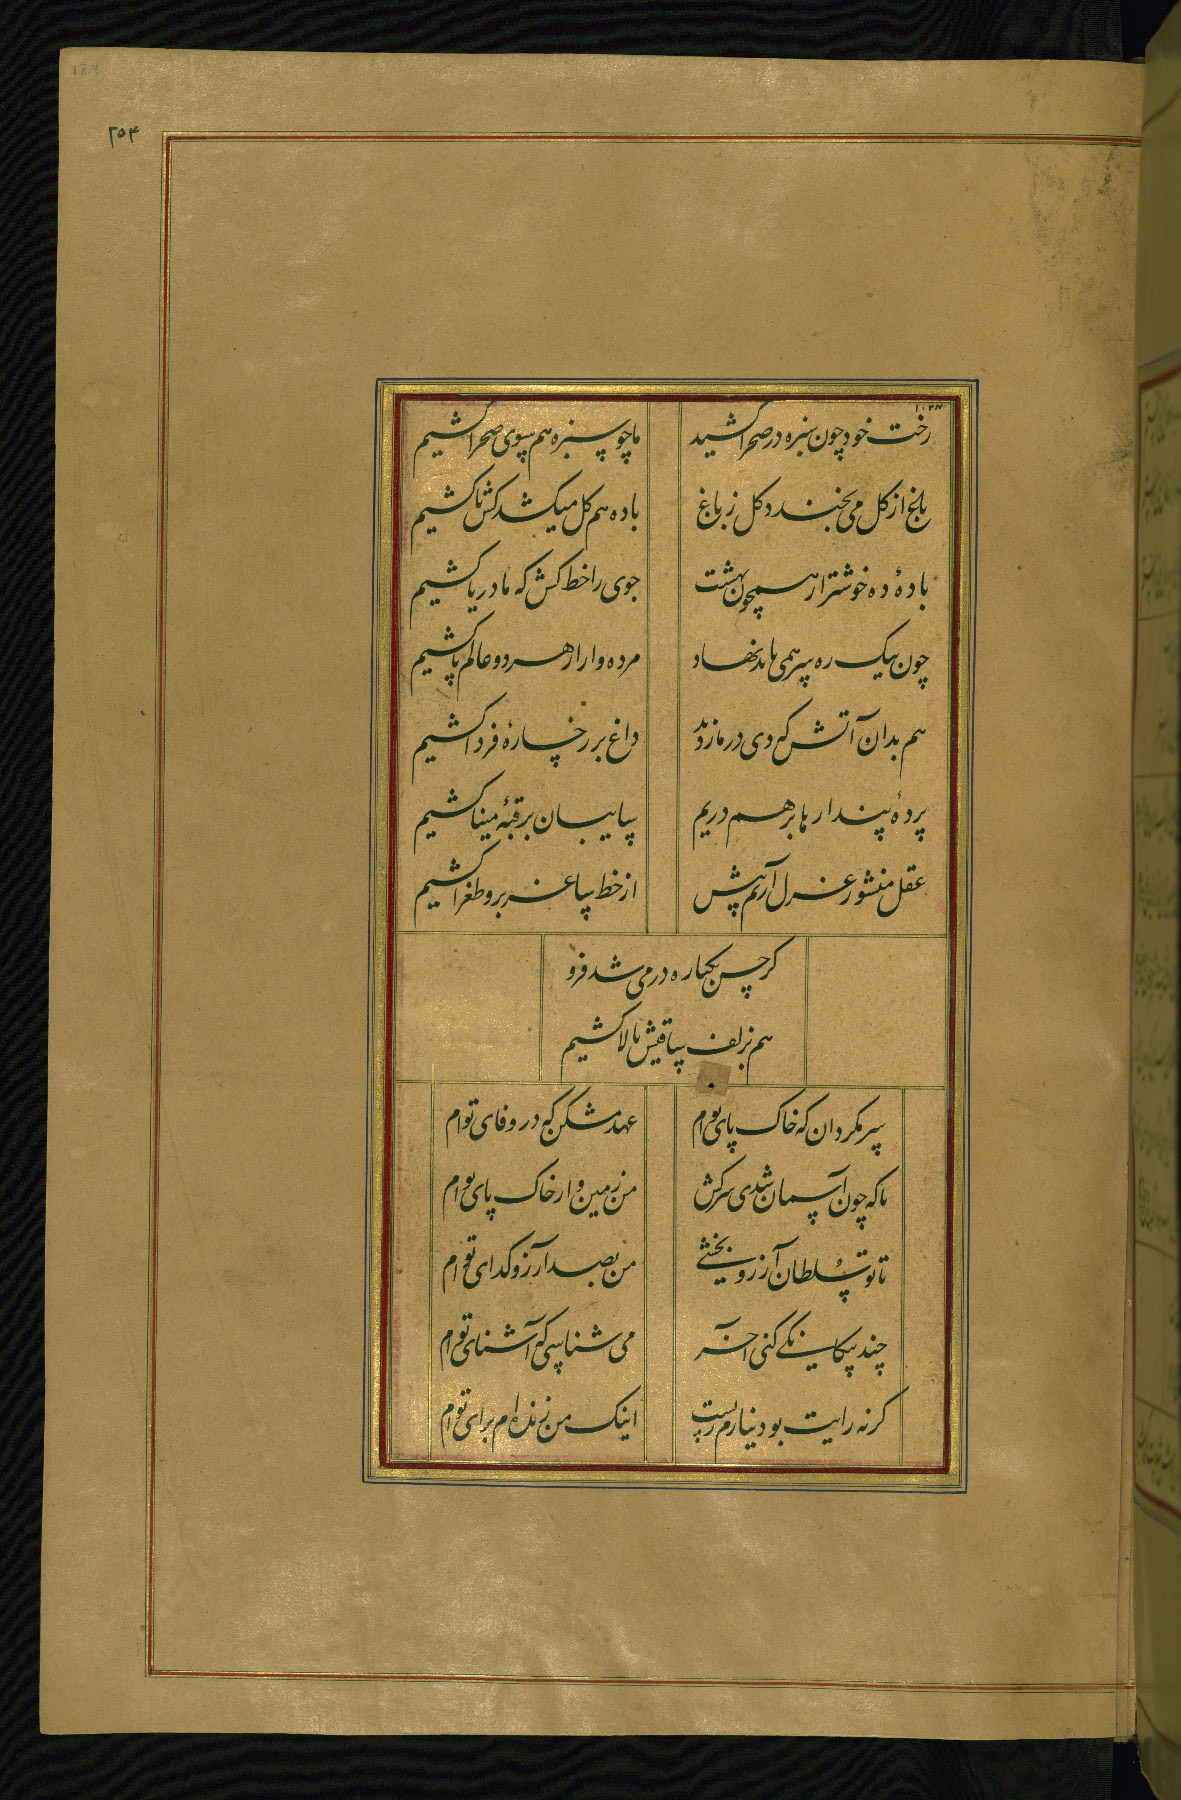 ۲۵۴
رخت خود چون سبزه در صحرا کشید ما چو سبزه هم بسوی صحرا کشیم
بلخ از کل می بخندد کل ز باغ باده هم کل میکشد کش تا کشیم
بادهٔ ده خوشتر از همچون بهشت جوی را خط کش که ما دریا کشیم
چون بیک ره سر همی باید نهاد مرده وار از هر دو عالم پا کشیم
هم بدان آتش که دی در ما زدند داغ بر رخسارهٔ فردا کشیم
پردهٔ پندارها بر هم دریم سایبان بر قبهٔ مینا کشیم
عقل منشور غزل آرد پیش از خط ساغر برو طغرا کشیم
کر حسن یکباره در می شد فرو
هم بزلف ساقیش بالا کشیم
سر مکردان که خاک پای توام عهد مشکن که در وفای توام
با که چون آسمان شدی سرکش من زمین وار خاک پای توام
تا تو سلطان آرزو بخشی من بصد آرزو کدای توام
چند بیکانکی کنی آخر می شناسی که آشنای توام
کر نه رایت بود نیارم زیست اینک من زنده ام برای توام